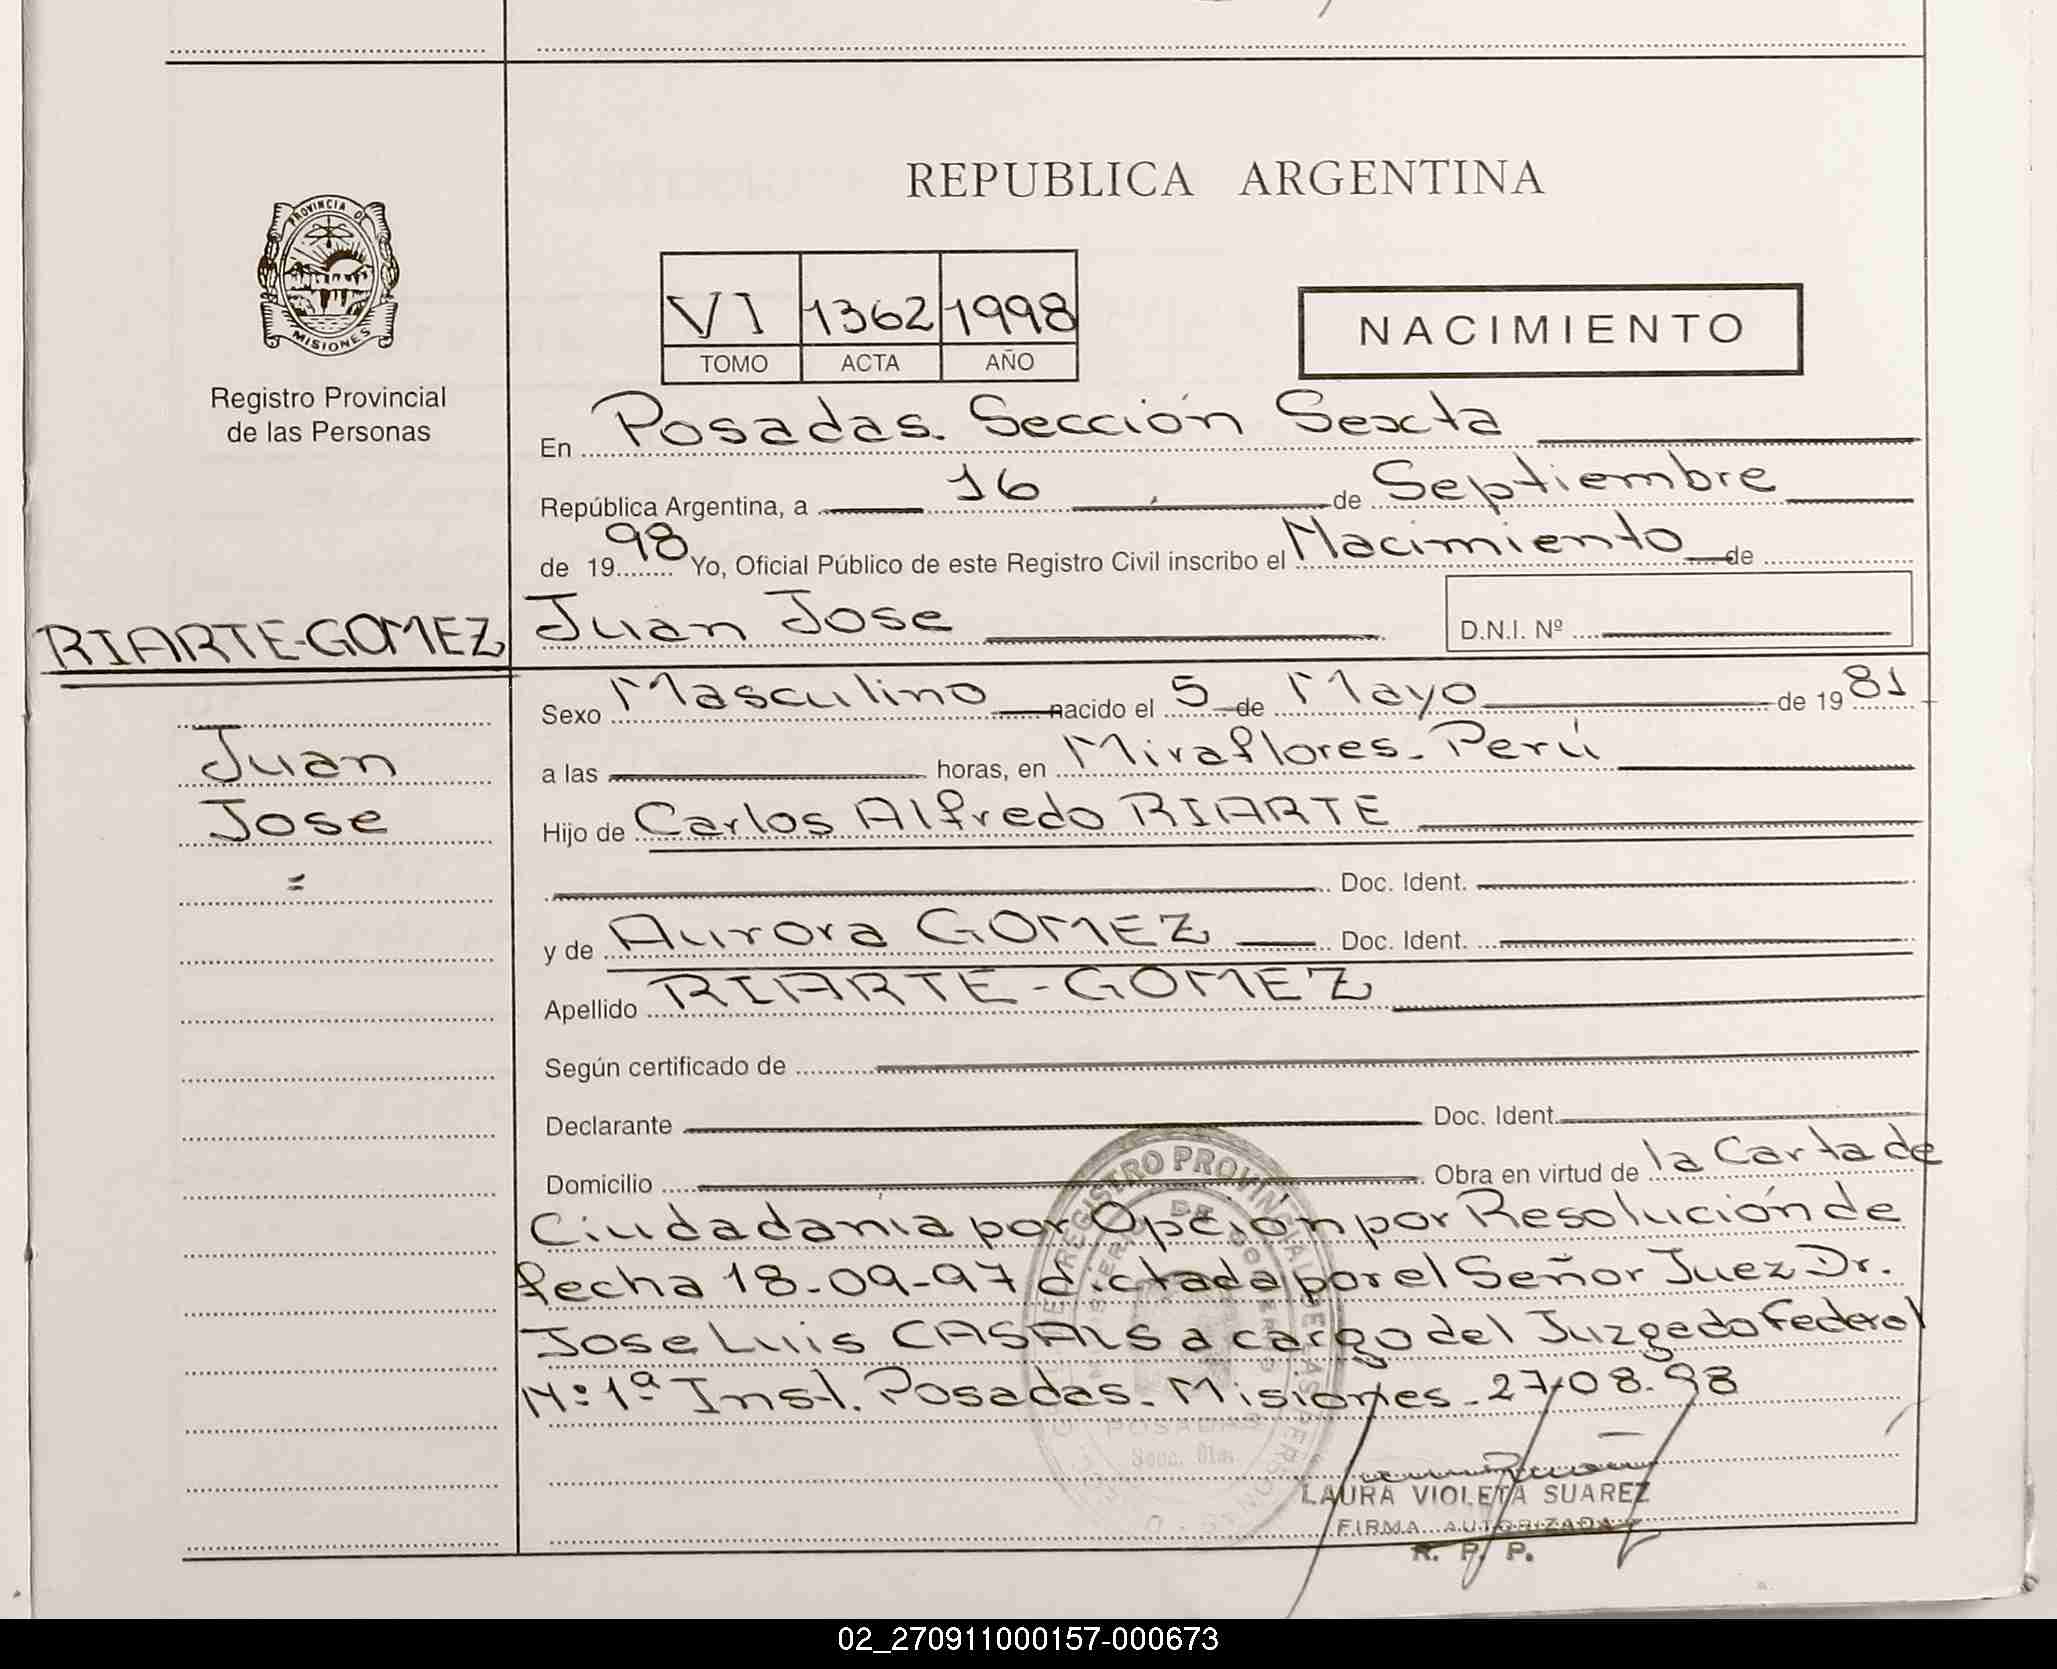 PROVINCIA DE
MISIONES
Registro Provincial
de las Personas
REPUBLICA ARGENTINA
VI 1362 1998
TOMO ACTA AÑO
NACIMIENTO
En Posadas. Sección Sexta
República Argentina, a 16 de Septiembre
de 1998 Yo, Oficial Público de este Registro Civil inscribo el Nacimiento de
RIARTE-GOMEZ Juan Jose D.N.I. Nº
Juan
Jose
Sexo Masculino nacido el 5 de Mayo de 1981
a las horas, en Miraflores - Perú
Hijo de Carlos Alfredo RIARTE
Doc. Ident.
y de Aurora GOMEZ Doc. Ident.
Apellido RIARTE - GOMEZ
Según certificado de
Declarante Doc. Ident.
Domicilio Obra en virtud de la Carta de
Ciudadania por Opción por Resolución de
fecha 18-09-97 dictada por el Señor Juez Dr.
Jose Luis CASALS a cargo del Juzgado Federal
Nº 1ª Inst. Posadas. Misiones - 27/08.98
REGISTRO PROVINCIAL DE LAS PERSONAS
POSADAS
LAURA VIOLETA SUAREZ
FIRMA AUTORIZADA
R. P. P.
02_270911000157-000673